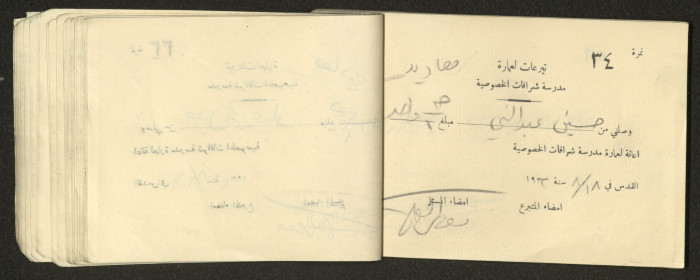 نمرة ٣٤
تبرعات لعمارة
مدرسة شرافات الخصوصية
وصلني من حسين عبد النبي مبلغ ١ واحد
اعانة لعمارة مدرسة شرافات الخصوصية
القدس في ١٨/٨ سنة ١٩٣٣
امضاء المستلم امضاء المتبرع